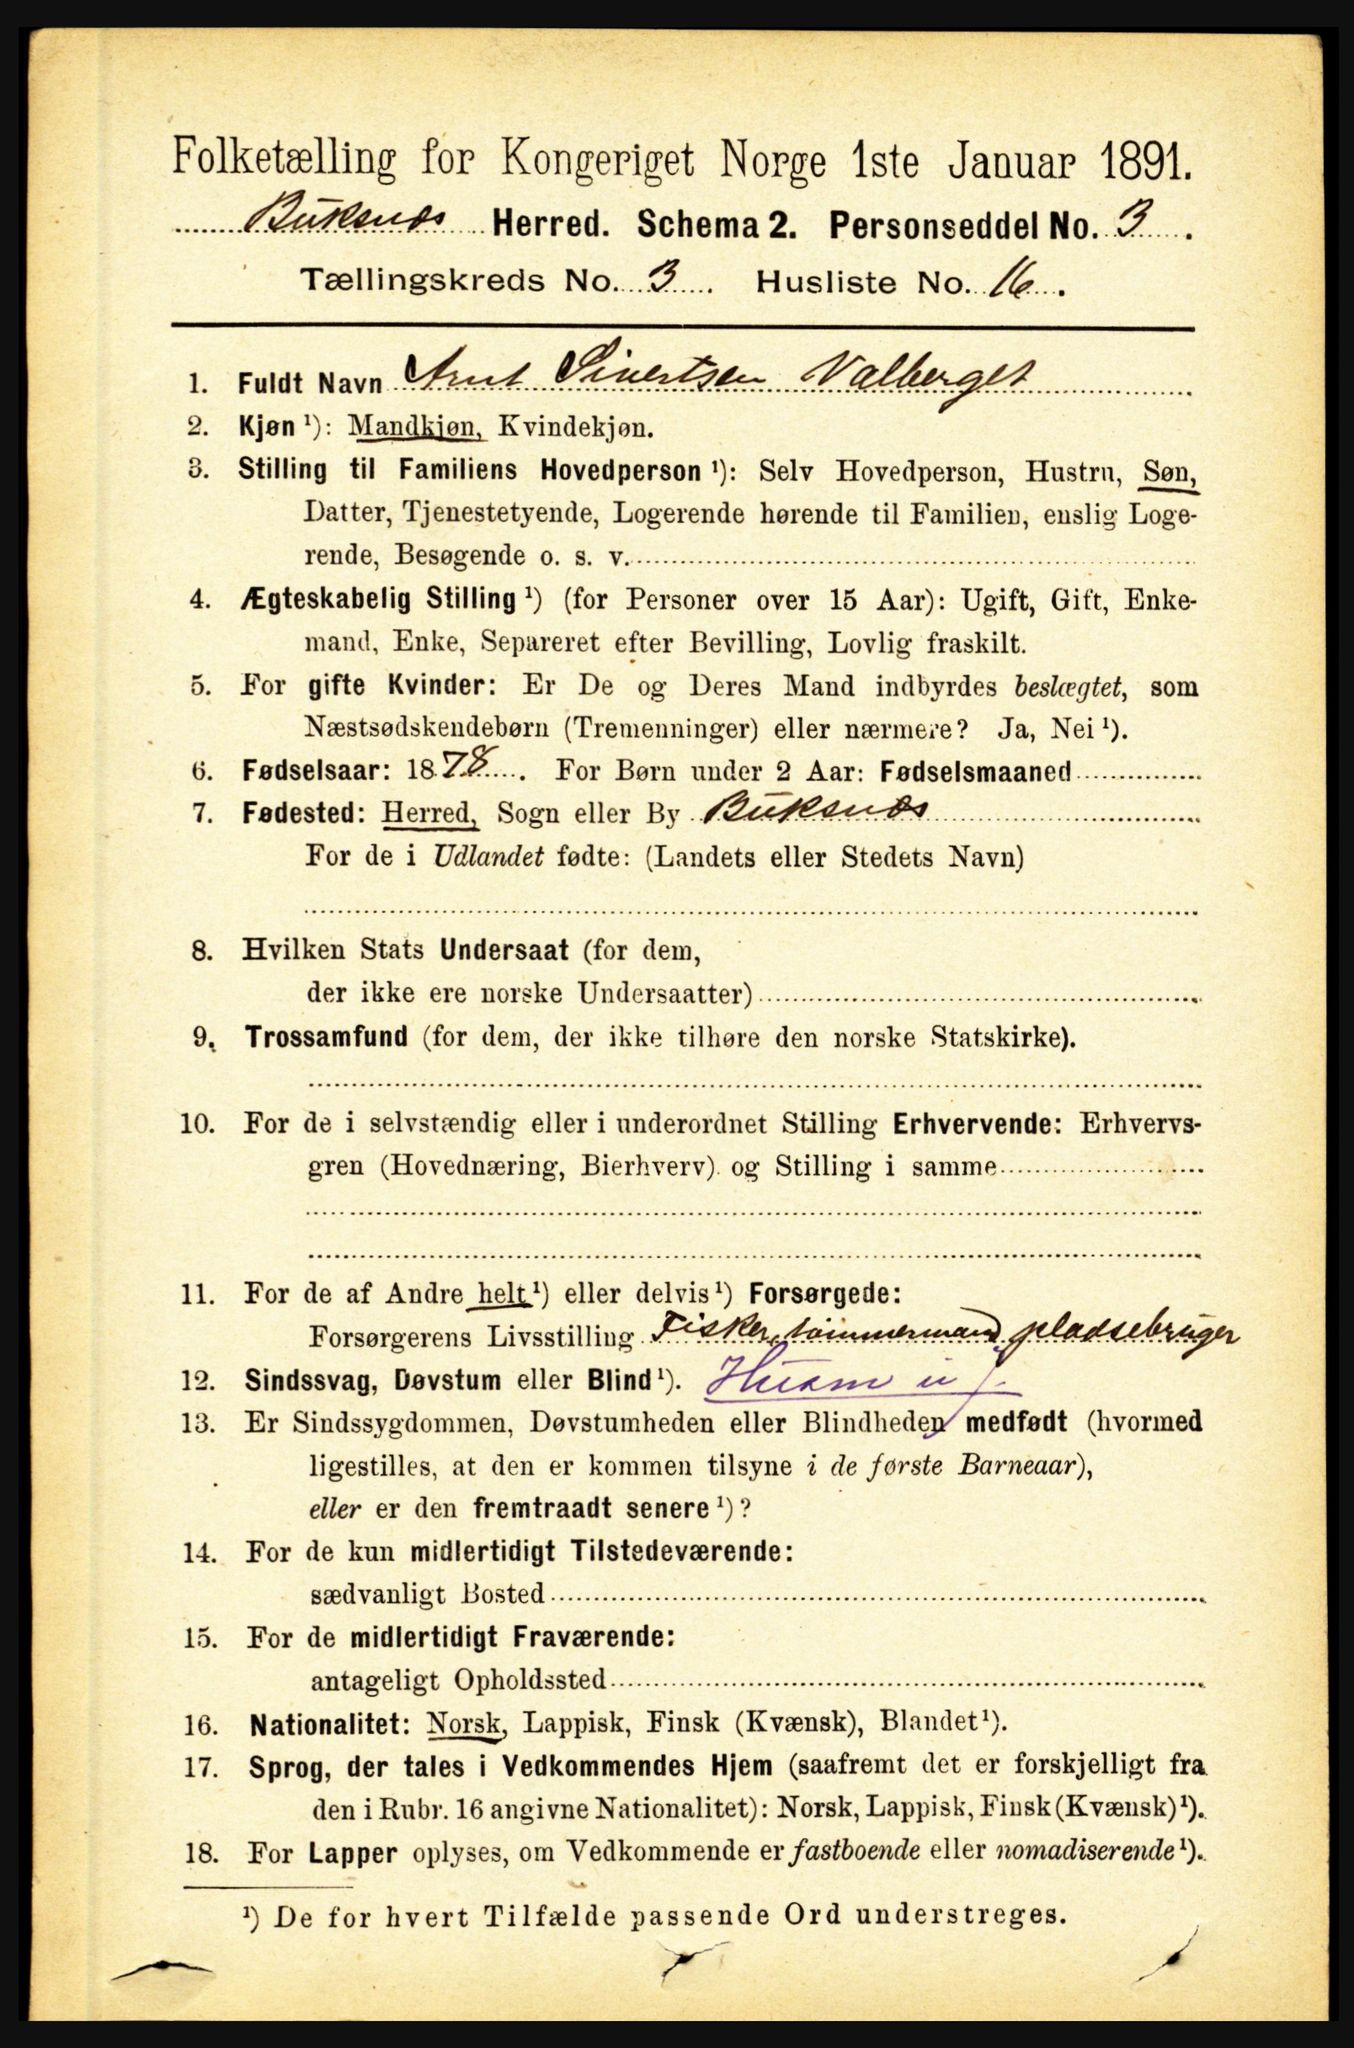 Folketælling for Kongeriget Norge 1ste Januar 1891.
Buksnæs Herred. Schema 2. Personseddel No. 3.
Tællingskreds No. 3. Husliste No. 16.
1. Fuldt Navn Arnt Sivertsen Valberget
2. Kjøn ¹): Mandkjøn, Kvindekjøn.
3. Stilling til Familiens Hovedperson ¹): Selv Hovedperson, Hustru, Søn,
Datter, Tjenestetyende, Logerende hørende til Familien, enslig Loge-
rende, Besøgende o. s. v.
4. Ægteskabelig Stilling ¹) (for Personer over 15 Aar): Ugift, Gift, Enke-
mand, Enke, Separeret efter Bevilling, Lovlig fraskilt.
5. For gifte Kvinder: Er De og Deres Mand indbyrdes beslægtet, som
Næstsødskendebørn (Tremenninger) eller nærmere? Ja, Nei ¹).
6. Fødselsaar: 1878. For Børn under 2 Aar: Fødselsmaaned
7. Fødested: Herred, Sogn eller By Buksnæs
For de i Udlandet fødte: (Landets eller Stedets Navn)
8. Hvilken Stats Undersaat (for dem,
der ikke ere norske Undersaatter)
9. Trossamfund (for dem, der ikke tilhøre den norske Statskirke).
10. For de i selvstændig eller i underordnet Stilling Erhvervende: Erhvervs-
gren (Hovednæring, Bierhverv) og Stilling i samme
11. For de af Andre helt ¹) eller delvis ¹) Forsørgede:
Forsørgerens Livsstilling Fisker, tømmermand, pladsebruger
12. Sindssvag, Døvstum eller Blind ¹). Husm u j.
13. Er Sindssygdommen, Døvstumheden eller Blindheden medfødt (hvormed
ligestilles, at den er kommen tilsyne i de første Barneaar),
eller er den fremtraadt senere ¹)?
14. For de kun midlertidigt Tilstedeværende:
sædvanligt Bosted
15. For de midlertidigt Fraværende:
antageligt Opholdssted
16. Nationalitet: Norsk, Lappisk, Finsk (Kvænsk), Blandet ¹).
17. Sprog, der tales i Vedkommendes Hjem (saafremt det er forskjelligt fra
den i Rubr. 16 angivne Nationalitet): Norsk, Lappisk, Finsk (Kvænsk) ¹).
18. For Lapper oplyses, om Vedkommende er fastboende eller nomadiserende ¹).
¹) De for hvert Tilfælde passende Ord understreges.